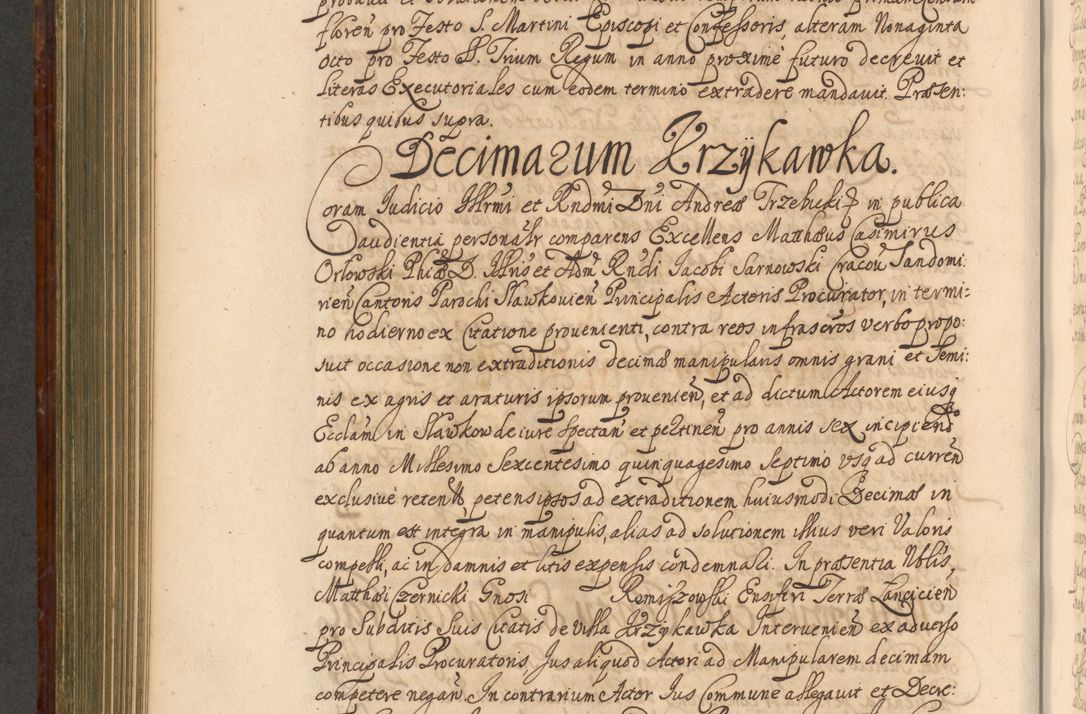 floreñ pro Festo S. Martini Episcopi et Confessoris, alteram Nonaginta
octo pro Festo SS. Trium Regum in anno proximé futuro decrevit et
literas Executoriales cum eodem termino extradere mandavit. Præsen:
tibus quibus supra.
Decimarum Krzÿkawka.
Coram Judicio Illrmi et Rndmi Dñi Andreæ Trzebicki in publica
audientia personalr comparens Excellens Matthæus Casimirus
Orłowski Phiæ D. Illris et Adm̃ Rñdi Jacobi Sarnowski Cracoů Sandomi:
rieñ Cantoris Parochi Sławkovieñ Principalis Actoris Procurator, in termi=
no hodierno ex Citatione provenienti, contra reos infrascros verbo propo:
suit occasione non extraditionis decimæ manipularis omnis grani et Semi:
nis ex agris et araturis ipsorum provenieñ, et ad dictum Actorem eiusq
Ecclam̃ in Sławkow de iure spectañ et pertineñ pro annis sex incipiendo
ab anno Millesimo Sexcentesimo quinquagesimo septimo usq ad curreñ
exclusivé retent, petens ipsos ad extraditionem huiusmodi Decimæ in
quantum est integra in manipulis, alias ad solutionem illius veri Valoris
compelli, ac in damnis et litis expensis condemnasci. In præsentia Nblis,
Matthæi Czernicki Gnosi Romiszowski Ensiferi Terræ Lancicieñ
pro Subditis Suis Citatis de villa Krzykawka Intervenieñ ex adverso
Principalis Procuratoris Jus aliquod Actori ad Manipularem decimam
competere negañ. In contrarium Actor Jus Commune allegavit et Decre: